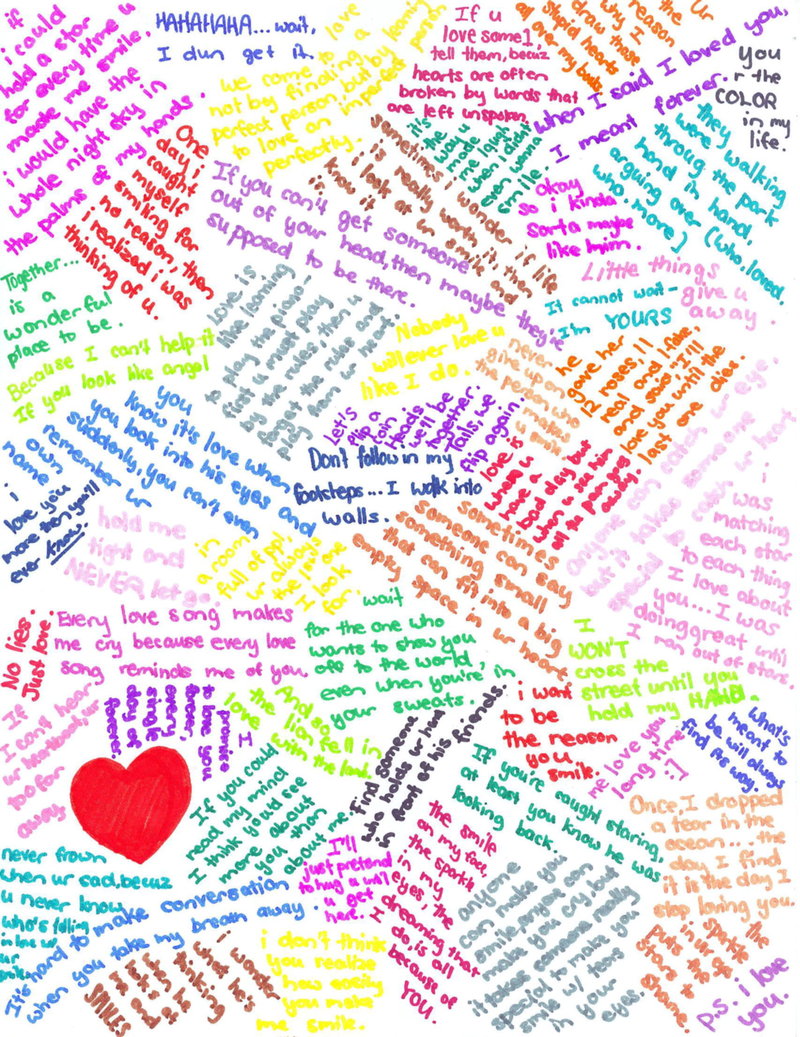 if
i could
hold a star
for every time u
made me smile,
i would have the
whole night sky in
the palms of my hands.
HAHAHAHA... wait,
I dun get it.
we come to love
not by finding a
perfect person, but by learning
to love an imperfect person
perfectly.
If u
love some1,
tell them, becuz
hearts are often
broken by words that
are left unspoken.
ur
the
reason
why I
draw those
stupid hearts
all over my
when I said I loved you,
I meant forever.
You
r the
COLOR
in my
life.
One
day i
caught
myself
smiling for
no reason, then
i realized i was
thinking of u.
If you can't get someone
out of your head, then maybe they're
supposed to be there.
sometimes i wonder if life
is really worth it, then
i look at ur smile and
know it is.
it's
the
way u
made
me laugh
when I didn't
even wanna
smile.
okay
so i kinda
sorta maybe
like him.
they were walking
throug the park
hand in hand,
arguing over (who loved
who more)
Little things
give u
away.
It cannot wait-
I'm YOURS
Together...
is a
wonderful
place to be.
Because I can't help it
If you look like angel
Love is
like learning
to play the piano.
first u must play
by the rules, then u
forget the rules and
play from ur heart.
Nobody
will ever love u
like I do.
never
give up on
the person who
makes
u smile.
he
gave her
12 roses, 11
real and 1 fake,
and said "I'll
love you until the
last one dies.
Let's
flip a
coin.
Heads,
we'll be
together.
Tails, we
flip again.
Don't follow in my
footsteps... I walk into
walls.
You
know it's love when
you look into his eyes and
suddenly, you can't even
remember ur
own
name.
i
love you
more then you'll
ever know.
love is
when u
have a
bad day but
when u see him
all the pain goes
away.
anyone can catch ur eye,
but it takes someone
special to catch ur heart
i
was
matching
each star
to each thing
I love about
you... I was
doing great until
I ran out of stars.
hold me
tight and
NEVER let go.
in
a room
full of ppl,
ur always
the 1st one
I look
for.
sometimes
someone can say
something small
that can fit into a big
empty space in ur heart.
No lies.
Just love.
Every love song makes
me cry because every love
song reminds me of you.
wait
for the one who
wants to show you
off to the world,
even when you're in
your sweats.
I
WON'T
cross the
street until you
hold my HAND.
If
I can't hear
ur heartbeat, ur
too far
away
I
promise
to love you
every
single
day of
forever.
And so
the lion fell in
love with the lamb.
find someone
who holds ur hand
in front of his friends.
i want
to be
the reason
you
smile.
me love you
long time
:]
What's
meant to
be will always
find its way.
If you could
read my mind
I think you'd see
more about
you than
about me.
If you're caught staring,
at least you know he was
looking back.
Once, I dropped
a tear in the
ocean.... the
day I find
it is the day I
stop loving you.
never frown
when ur sad, becuz
u never know
who's falling
in love w/
ur
smile.
It's hard to make conversation
when you take my breath away.
I'll
just pretend
to hug u until
u get
here.
the smile
on my face,
the sparkle
in my
eyes, the
dreaming that
I do, is all
because of
YOU.
anyone
can make you
smile, anyone can
make you cry but
it takes someone really
special to make you
smile w/ tears
in your
eyes.
i don't think
you realize
how easily
you make
me smile.
the
sparkle
in ur eyes
puts the
stars to
shame.
p.s. i love
you.